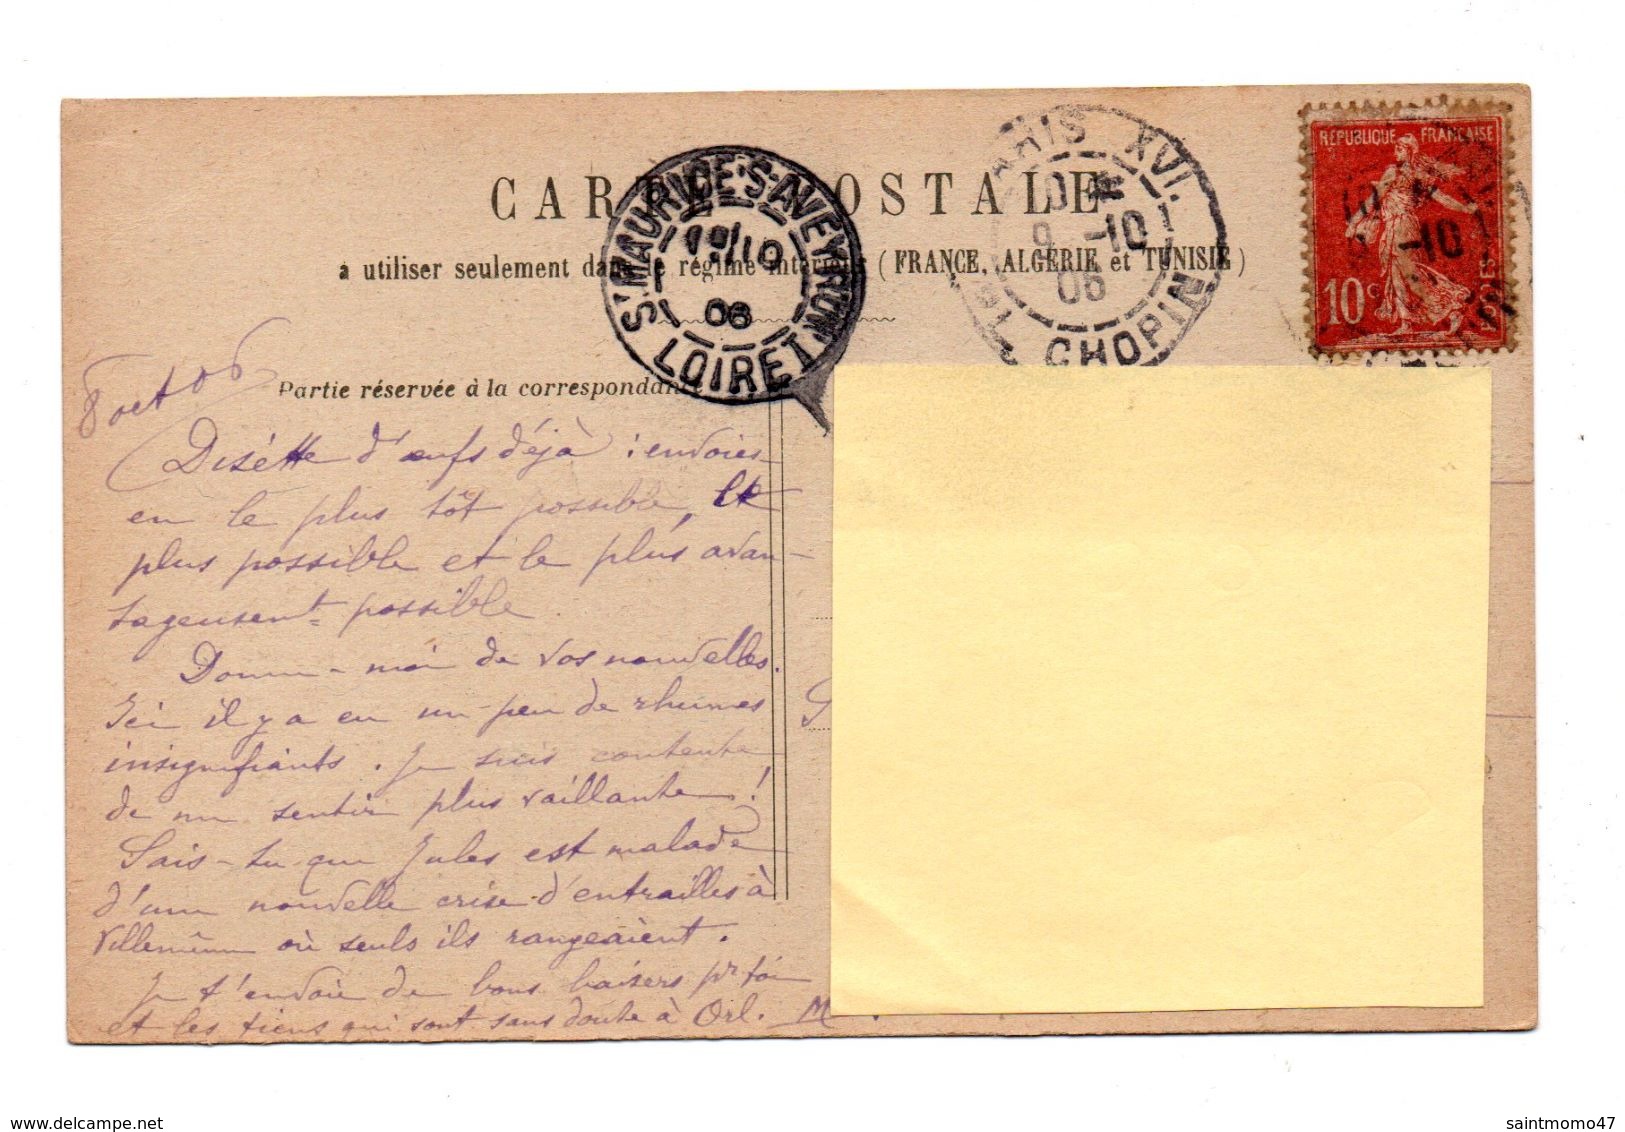 CARTE POSTALE
à utiliser seulement dans le régime intérieur (FRANCE, ALGÉRIE et TUNISIE)
Sᵗ MAURICE-S-AVEYRON
10
06
LOIRET
PARIS XVI.
9 -10
06
CHOPIN
RÉPUBLIQUE FRANÇAISE
10 c
POSTES
-10
8 oct 06
Partie réservée à la correspondance
Disette d'œufs déjà : envoies
en le plus tôt possible, le
plus possible et le plus avan-
tageusent possible.
Donne-moi de vos nouvelles.
Ici il y a eu un peu de rhumes
insignifiants. Je suis contente
de me sentir plus vaillante !
Sais-tu que Jules est malade
d'une nouvelle crise d'entrailles à
où seuls ils rangeaient.
Je t'envoie de bons baisers pr toi
et les tiens qui sont sans doute à Orl. M
delcampe.net
saintmomo47